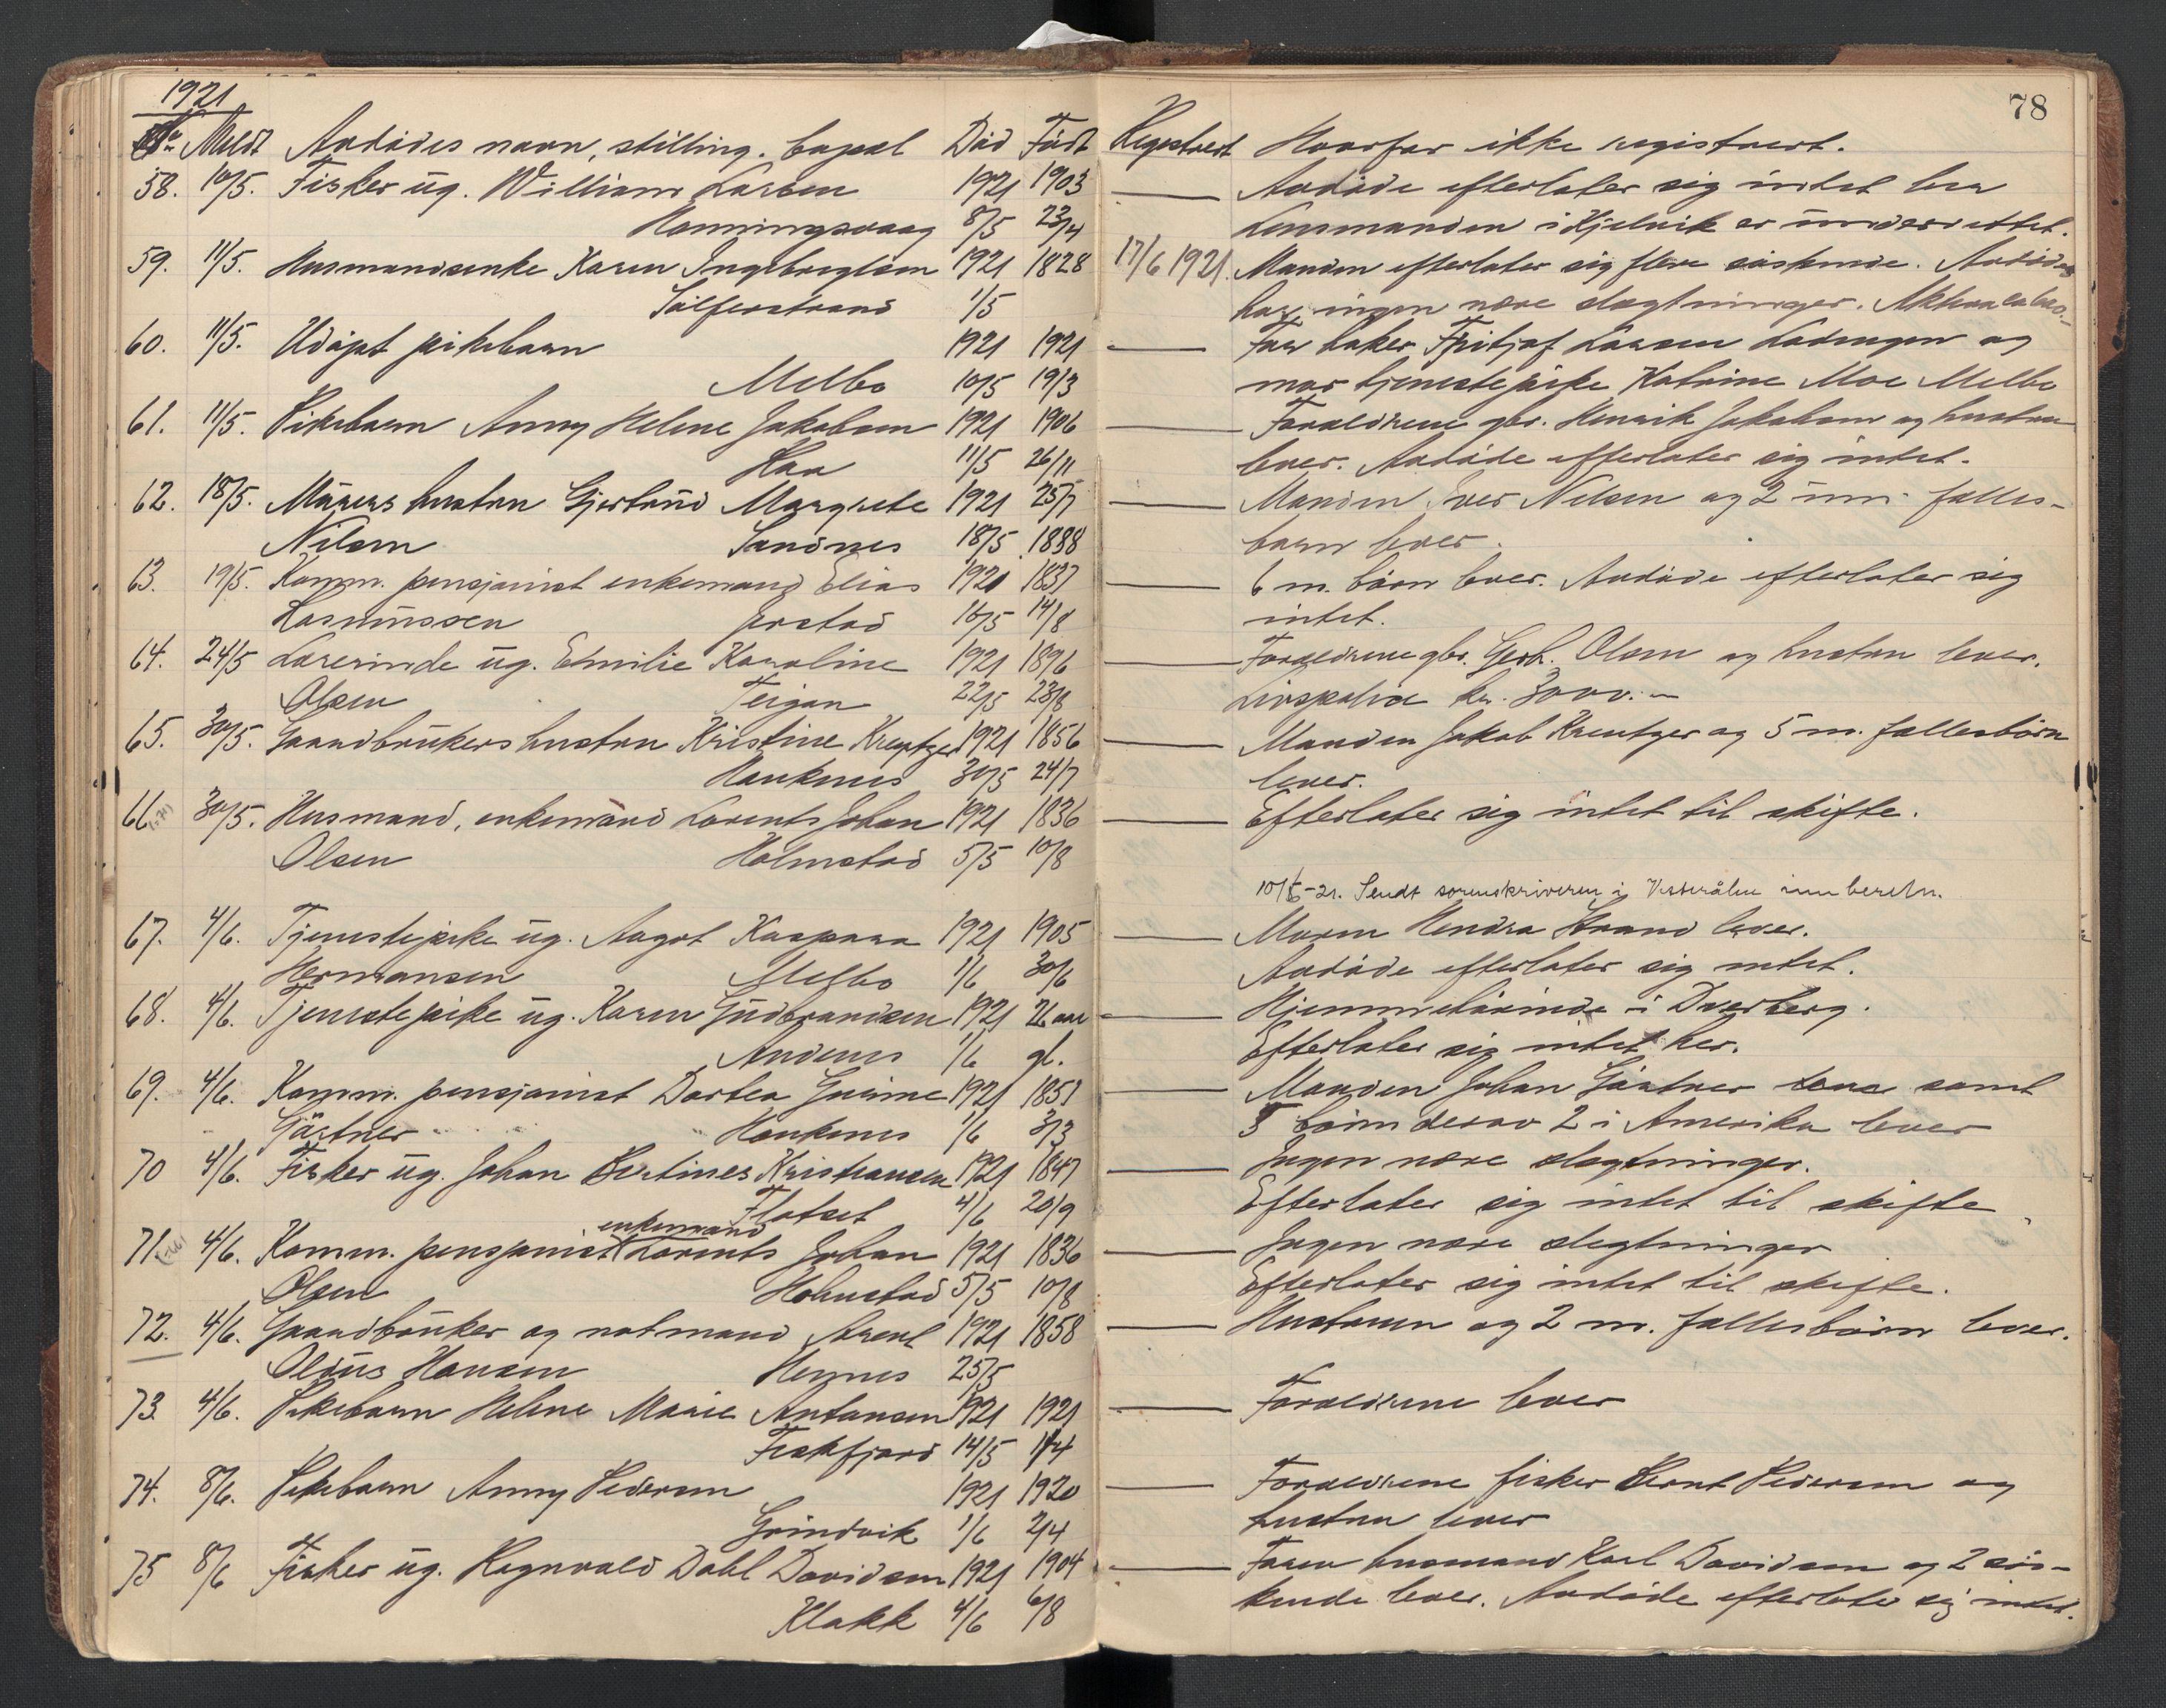 1921
78
No. Meldt Avdødes navn, stilling, bopæl Død Født
58. 10/5. Fisker ug. William Larsen 1921 1903
Honningsvaag 8/5 23/4
59. 11/5. Husmandsenke Karen Ingebregtsen 1921 1828
1/5
60. 11/5. Udøpt pikebarn 1921 1921
Melbo 10/5 19/3
61. 11/5. Pikebarn Anny Helene Jakobsen 1921 1906
Haa 11/5 26/11
62. 18/5. Murers hustru Gjertrud Margrete 1921 25/7
Nilsen Sandnes 18/5 1888
63. 19/5. Komm. pensjonist enkemand Elias 1921 1837
Rasmussen Jorstad 16/5 14/8
64. 24/5 Lærerinde ug. Emilie Karoline 1921 1896
Olsen Teigan 22/5 23/8
65. 30/5. Gaardbrukers hustru Kristine Kreutzer 1921 1856
Haukenes 30/5 24/7
66. 30/5. Husmand, enkemand Lorents Johan 1921 1836
Olsen Holmstad 5/5 10/8
67. 4/6. Tjenestepike ug. Aagot Kaspara 1921 1905
Hermansen Melbo 1/6 30/6
68. 4/6. Tjenestepike ug. Karen Gudbrandsen 1921 26 aar
Andenes 1/6 gl.
69. 4/6. Komm. pensjonist Dortea Gurine 1921 1851
Gärtner Haukenes 1/6 3/3
70 4/6. Fisker ug. Johan Bertines Kristiansen 1921 1847
Flatset 4/6 20/9
enkemand
71. 4/6. Komm. pensjonist Lorents Johan 1921 1836
Olsen Holmstad 5/5 10/8
72. 4/6. Gaardbruker og notmand Arent 1921 1858
Oldus Hansen Hennes 25/5
73. 4/6. Pikebarn Helene Marie Antonsen 1921 1921
Fiskfjord 14/5 1/4
74. 8/6. Pikebarn Anny Pedersen 1921 1920
Grindvik 1/6 2/4
75 8/6 Fisker ug. Ragnvald Dahl Davidsen 1921 1904
Klakk 4/6 6/8
Registrert Hvorfor ikke registrert.
Avdøde efterlater sig intet her
Lensmanden i Kjelvik er underrettet.
17/6 1921. Manden efterlater sig flere søskende. Avdøde
har ingen nære slægtninger.
Far baker Fritjof Larsen Lødingen og
mor tjenestepike Katrine Moe Melbo
Forældrene gbr. Henrik Jakobsen og hustru
lever. Avdøde efterlater sig intet.
Manden Iver Nilsen og 2 um. fælles-
barn lever.
6 m. børn lever. Avdøde efterlater sig
intet.
Forældrene gbr. Gerh. Olsen og hustru lever.
Livspolice kr. 3000.-
Manden Jakob Kreutzer og 5 m. fællesbørn
lever.
Efterlater sig intet til skifte.
10/6-21. Sendt sorenskriveren i Vesterålen innberetn.
Moren Hendra Strand lever.
Avdøde efterlater sig intet.
Hjemmehørende i Dverberg.
Efterlater sig intet her.
Manden Johan Gärtner lever samt
5 børn derav 2 i Amerika lever
Ingen nære slegtninger.
Efterlater sig intet til skifte
Ingen nære slegtninger
Efterlater sig intet til skifte.
Hustruen og 2 m. fællesbørn lever.
Forældrene lever
Forældrene fisker Bernt Pedersen og
hustru lever
Faren husmand Karl Davidsen og 2 søs-
kende lever. Avdøde efterlater sig intet.